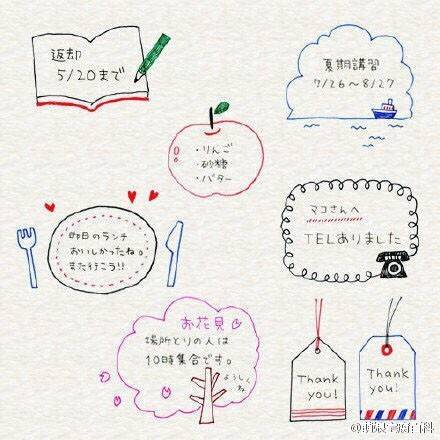 返却
5/20まで
夏期講習
7/26～8/27
・りんご
・砂糖
・バター
マコさんへ
TELありました
昨日のランチ
おいしかったね。
また行こう!!
お花見
場所とりの人は
10時集合です。
よろしく
ね
Thank
you!
Thank
you!